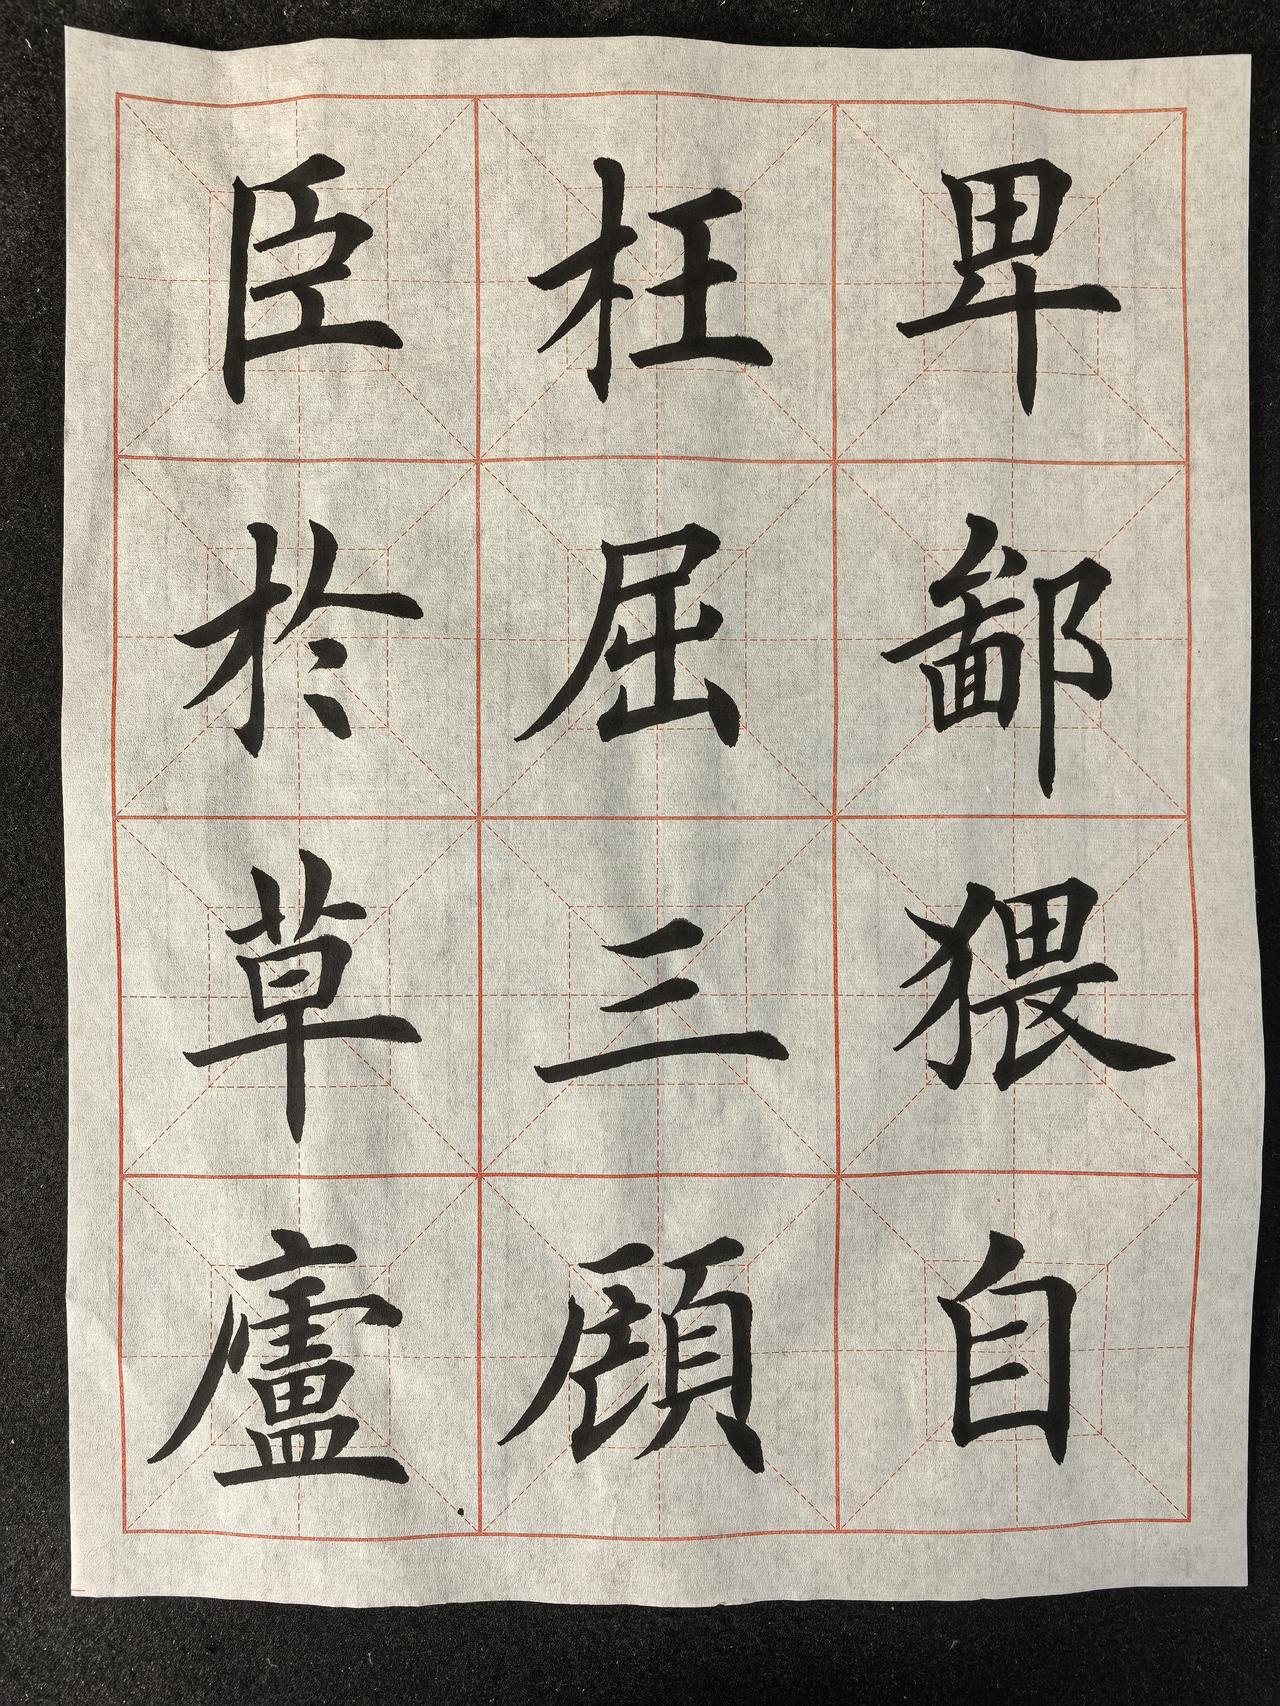 卑鄙猥自
枉屈三顾
臣於草廬